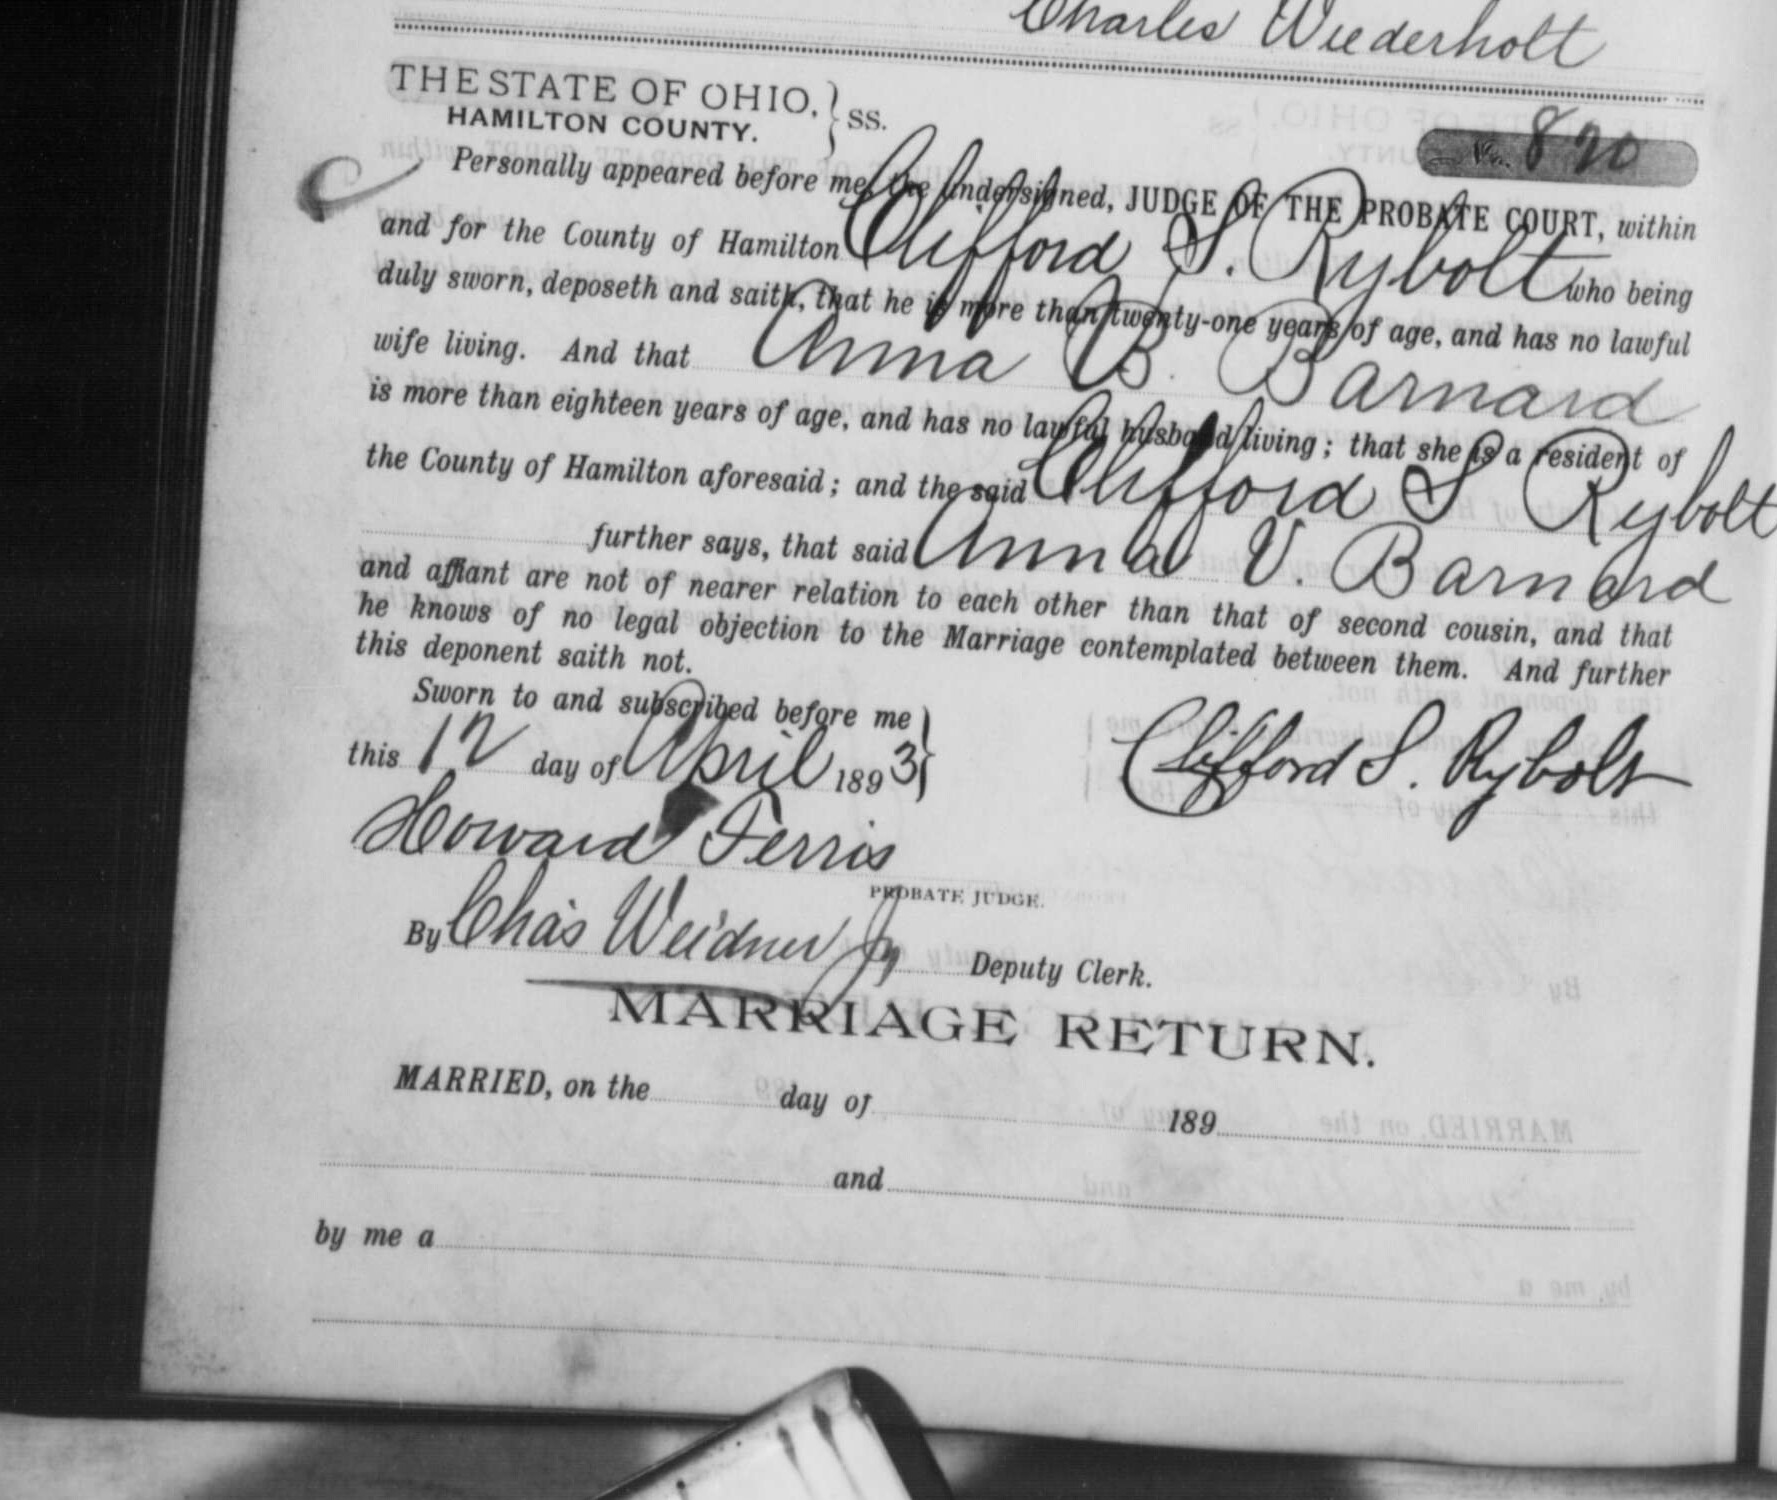 Charles Wiederholt
THE STATE OF OHIO,
HAMILTON COUNTY. } SS.
No. 820
Personally appeared before me, the undersigned, JUDGE OF THE PROBATE COURT, within
and for the County of Hamilton Clifford S. Rybolt who being
duly sworn, deposeth and saith, that he is more than twenty-one years of age, and has no lawful
wife living. And that Anna V. Barnard
is more than eighteen years of age, and has no lawful husband living; that she is a resident of
the County of Hamilton aforesaid; and the said Clifford S Rybolt
further says, that said Anna V. Barnard
and affiant are not of nearer relation to each other than that of second cousin, and that
he knows of no legal objection to the Marriage contemplated between them. And further
this deponent saith not.
Sworn to and subscribed before me
this 12 day of April 1893 }
Clifford S. Rybolt
Howard Ferris
PROBATE JUDGE.
By Chas Weidner Jr Deputy Clerk.
MARRIAGE RETURN.
MARRIED, on the day of 189
and
by me a